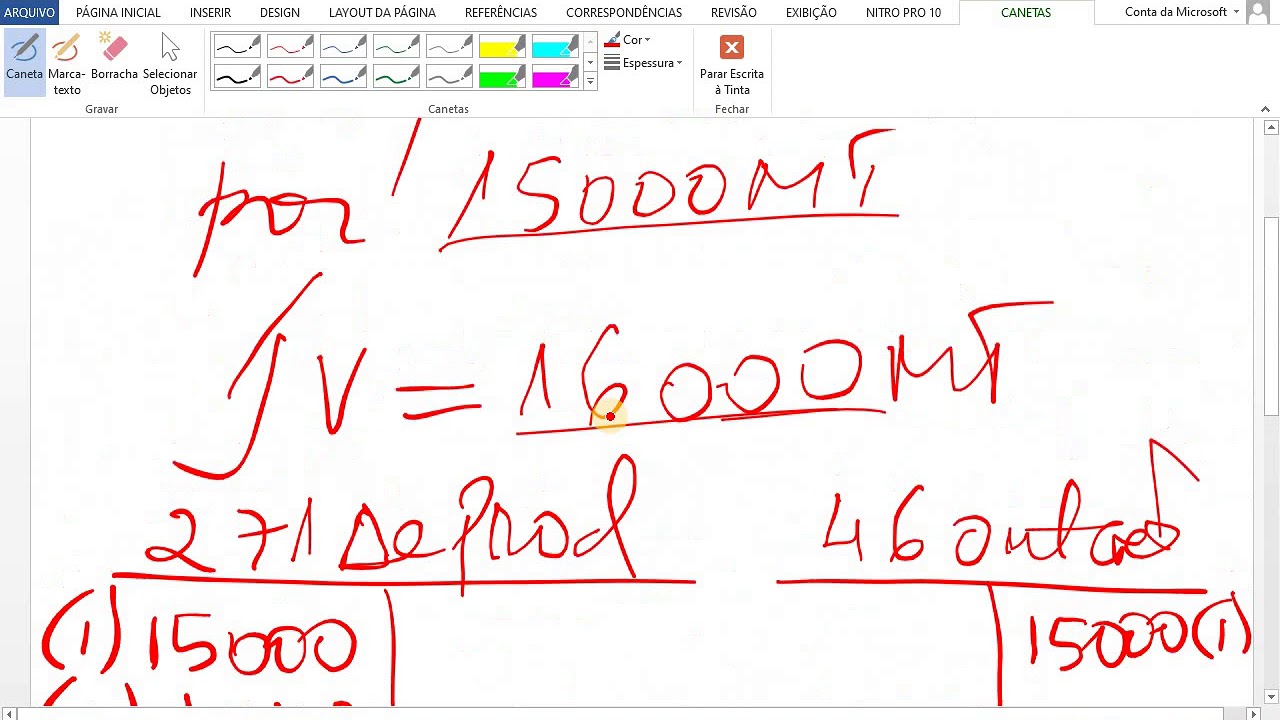 ARQUIVO PÁGINA INICIAL INSERIR DESIGN LAYOUT DA PÁGINA REFERÊNCIAS CORRESPONDÊNCIAS REVISÃO EXIBIÇÃO NITRO PRO 10 CANETAS Conta da Microsoft
Caneta Marca-texto Borracha Selecionar Objetos
Cor
Espessura
Parar Escrita à Tinta
Gravar Canetas Fechar
por 15000MT
JV = 16000MT
271 De Prod
(1) 15000
15000(1)